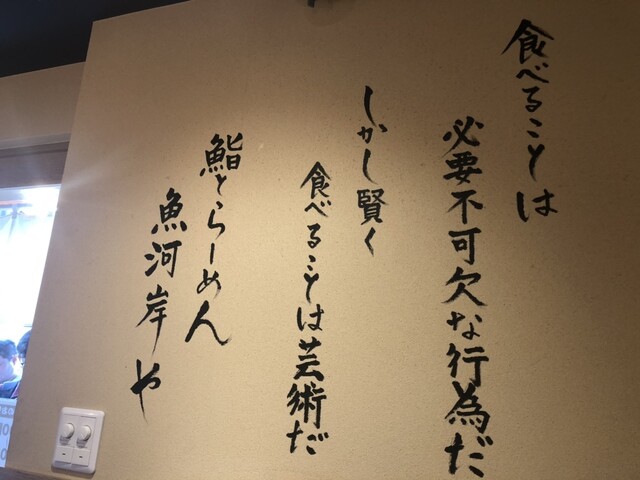 食べることは
必要不可欠な行為だ
しかし賢く
食べることは芸術だ
鮨とらーめん
魚河岸や